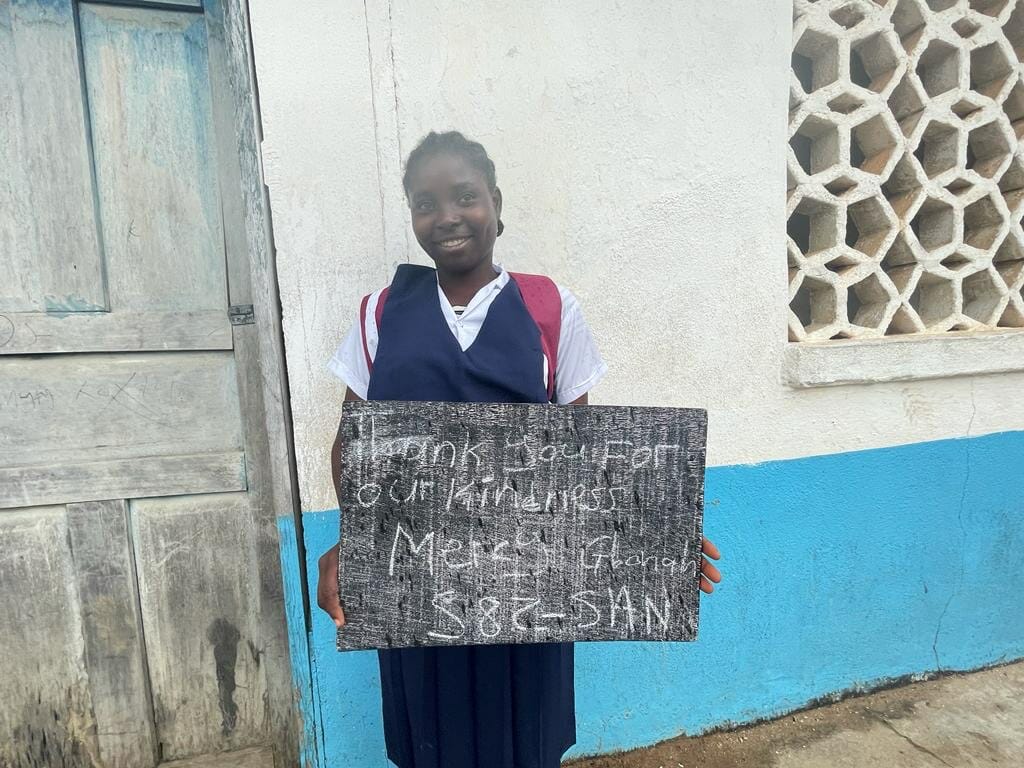 Thank you For
our Kindness
Mercy Gbanah
S82-SAN